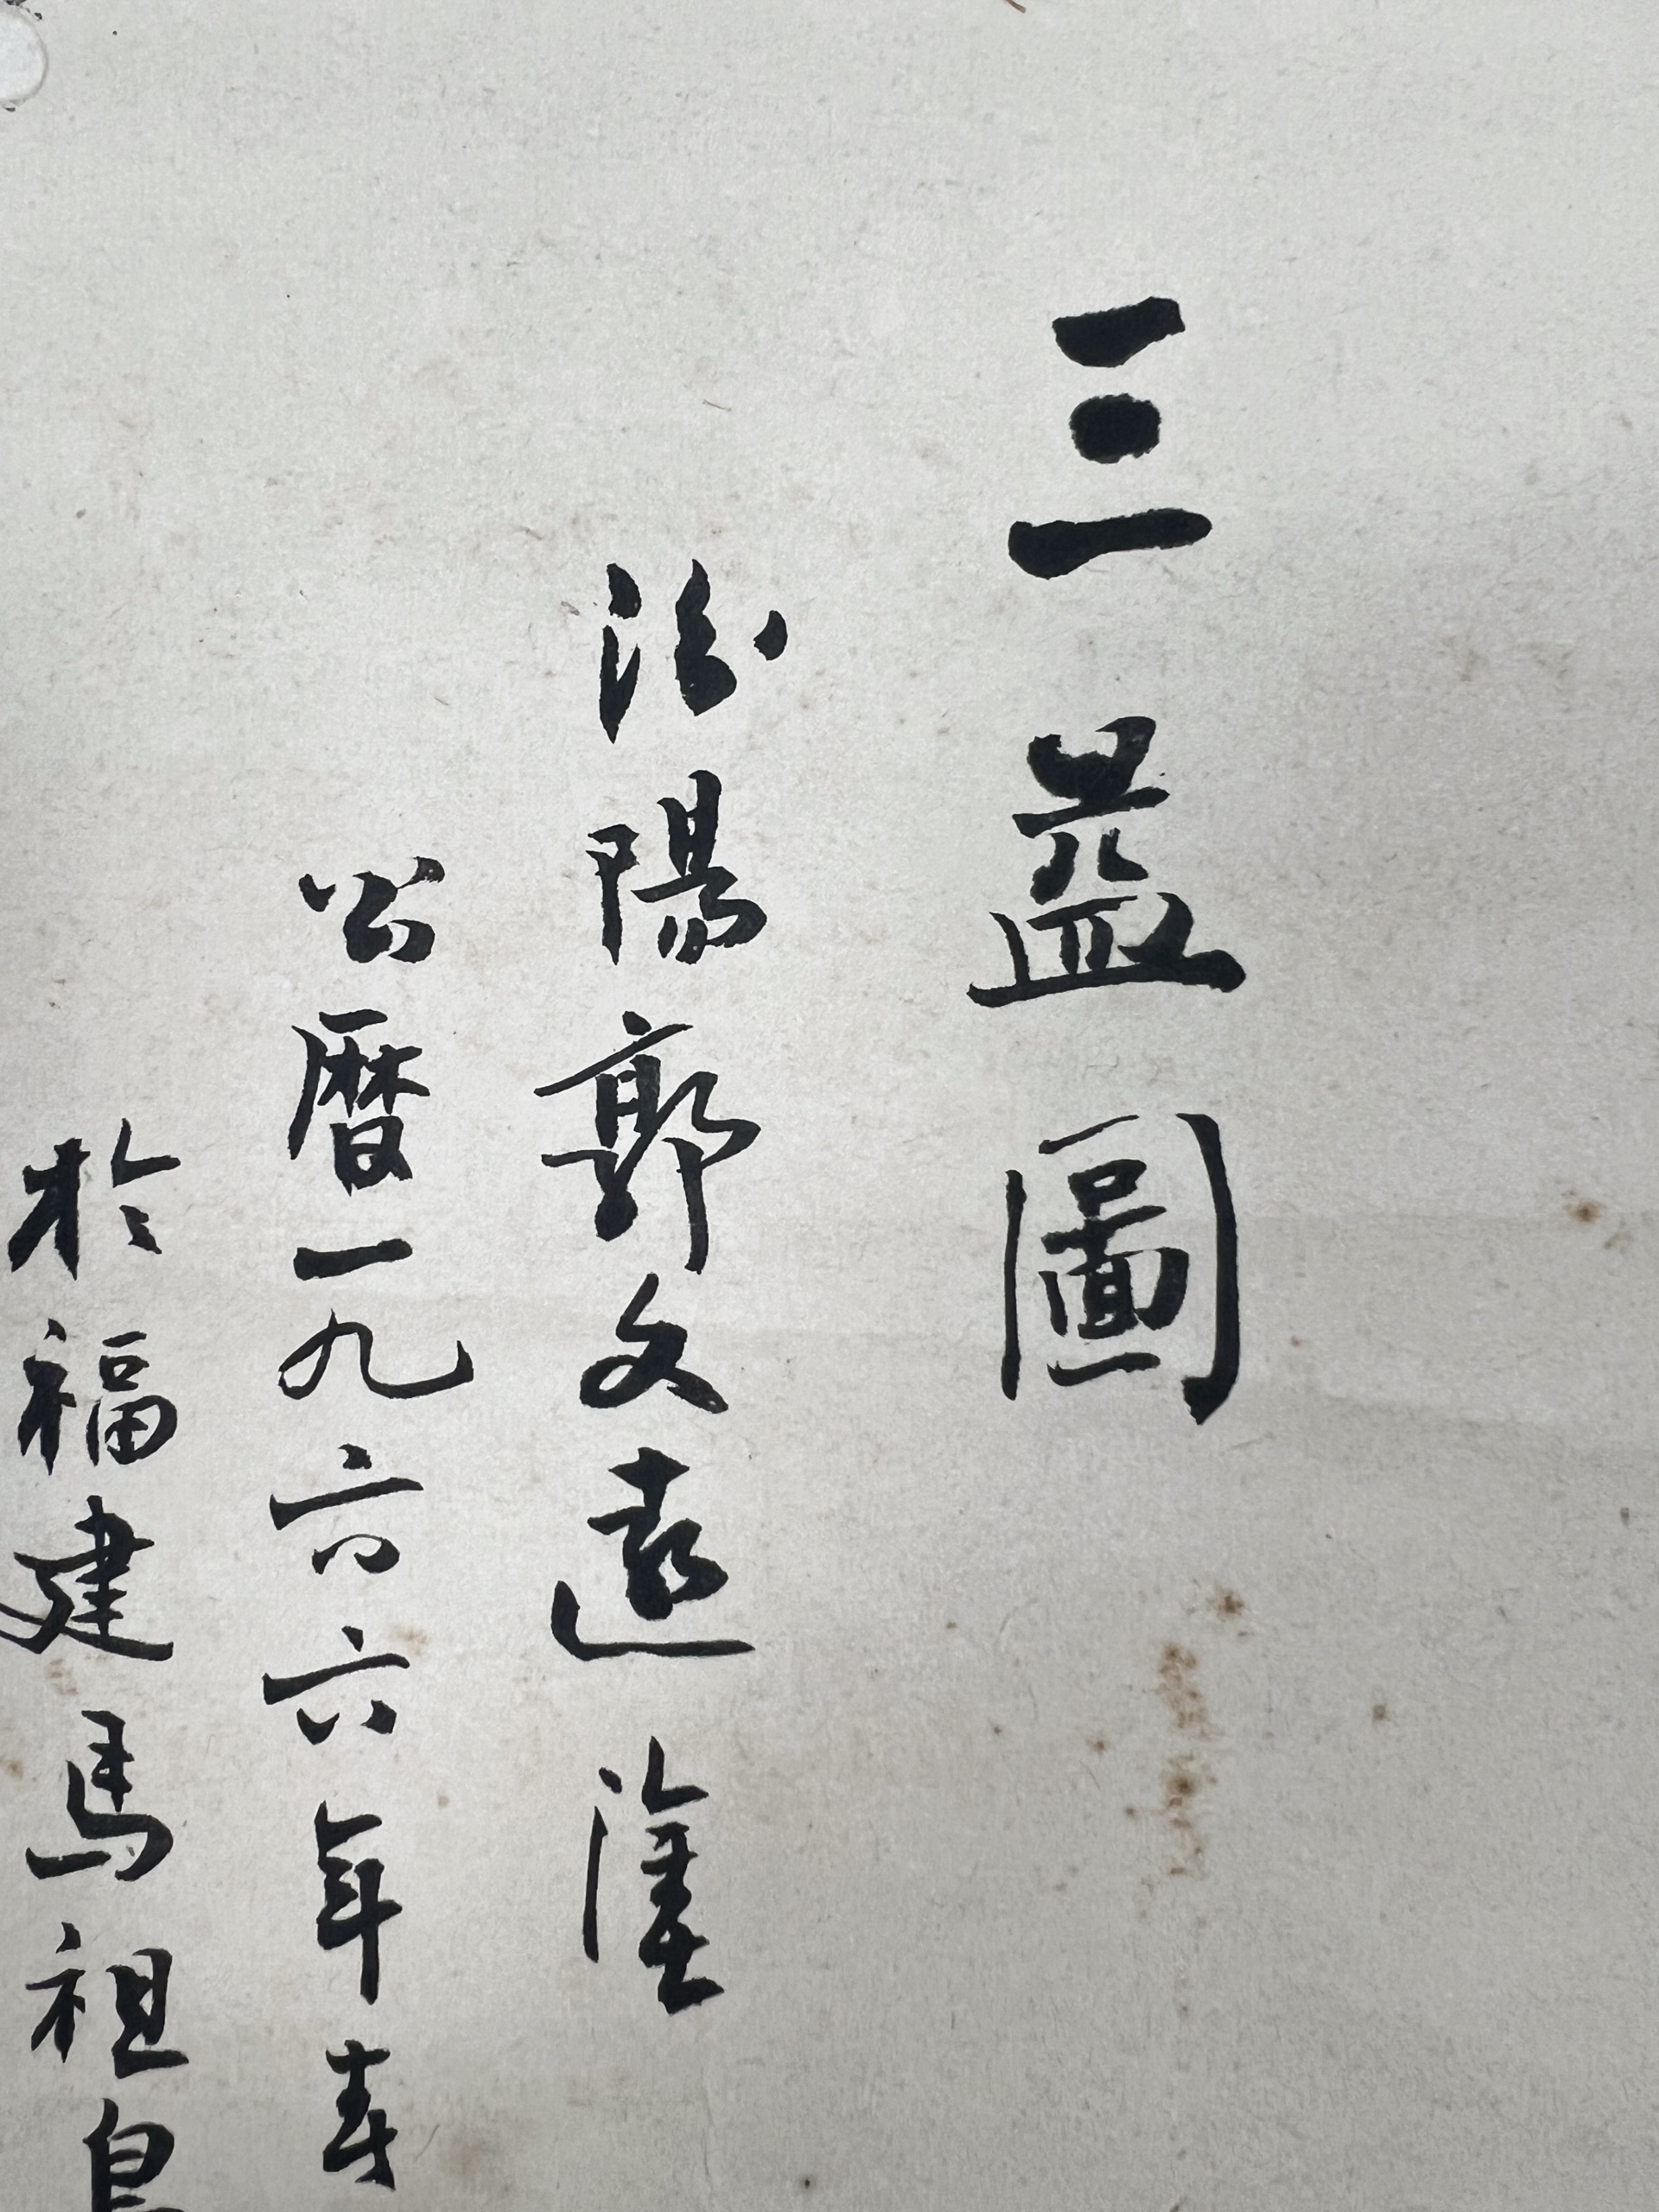 三益圖
汾陽郭文遠
公曆一九六六年春
於福建馬祖島